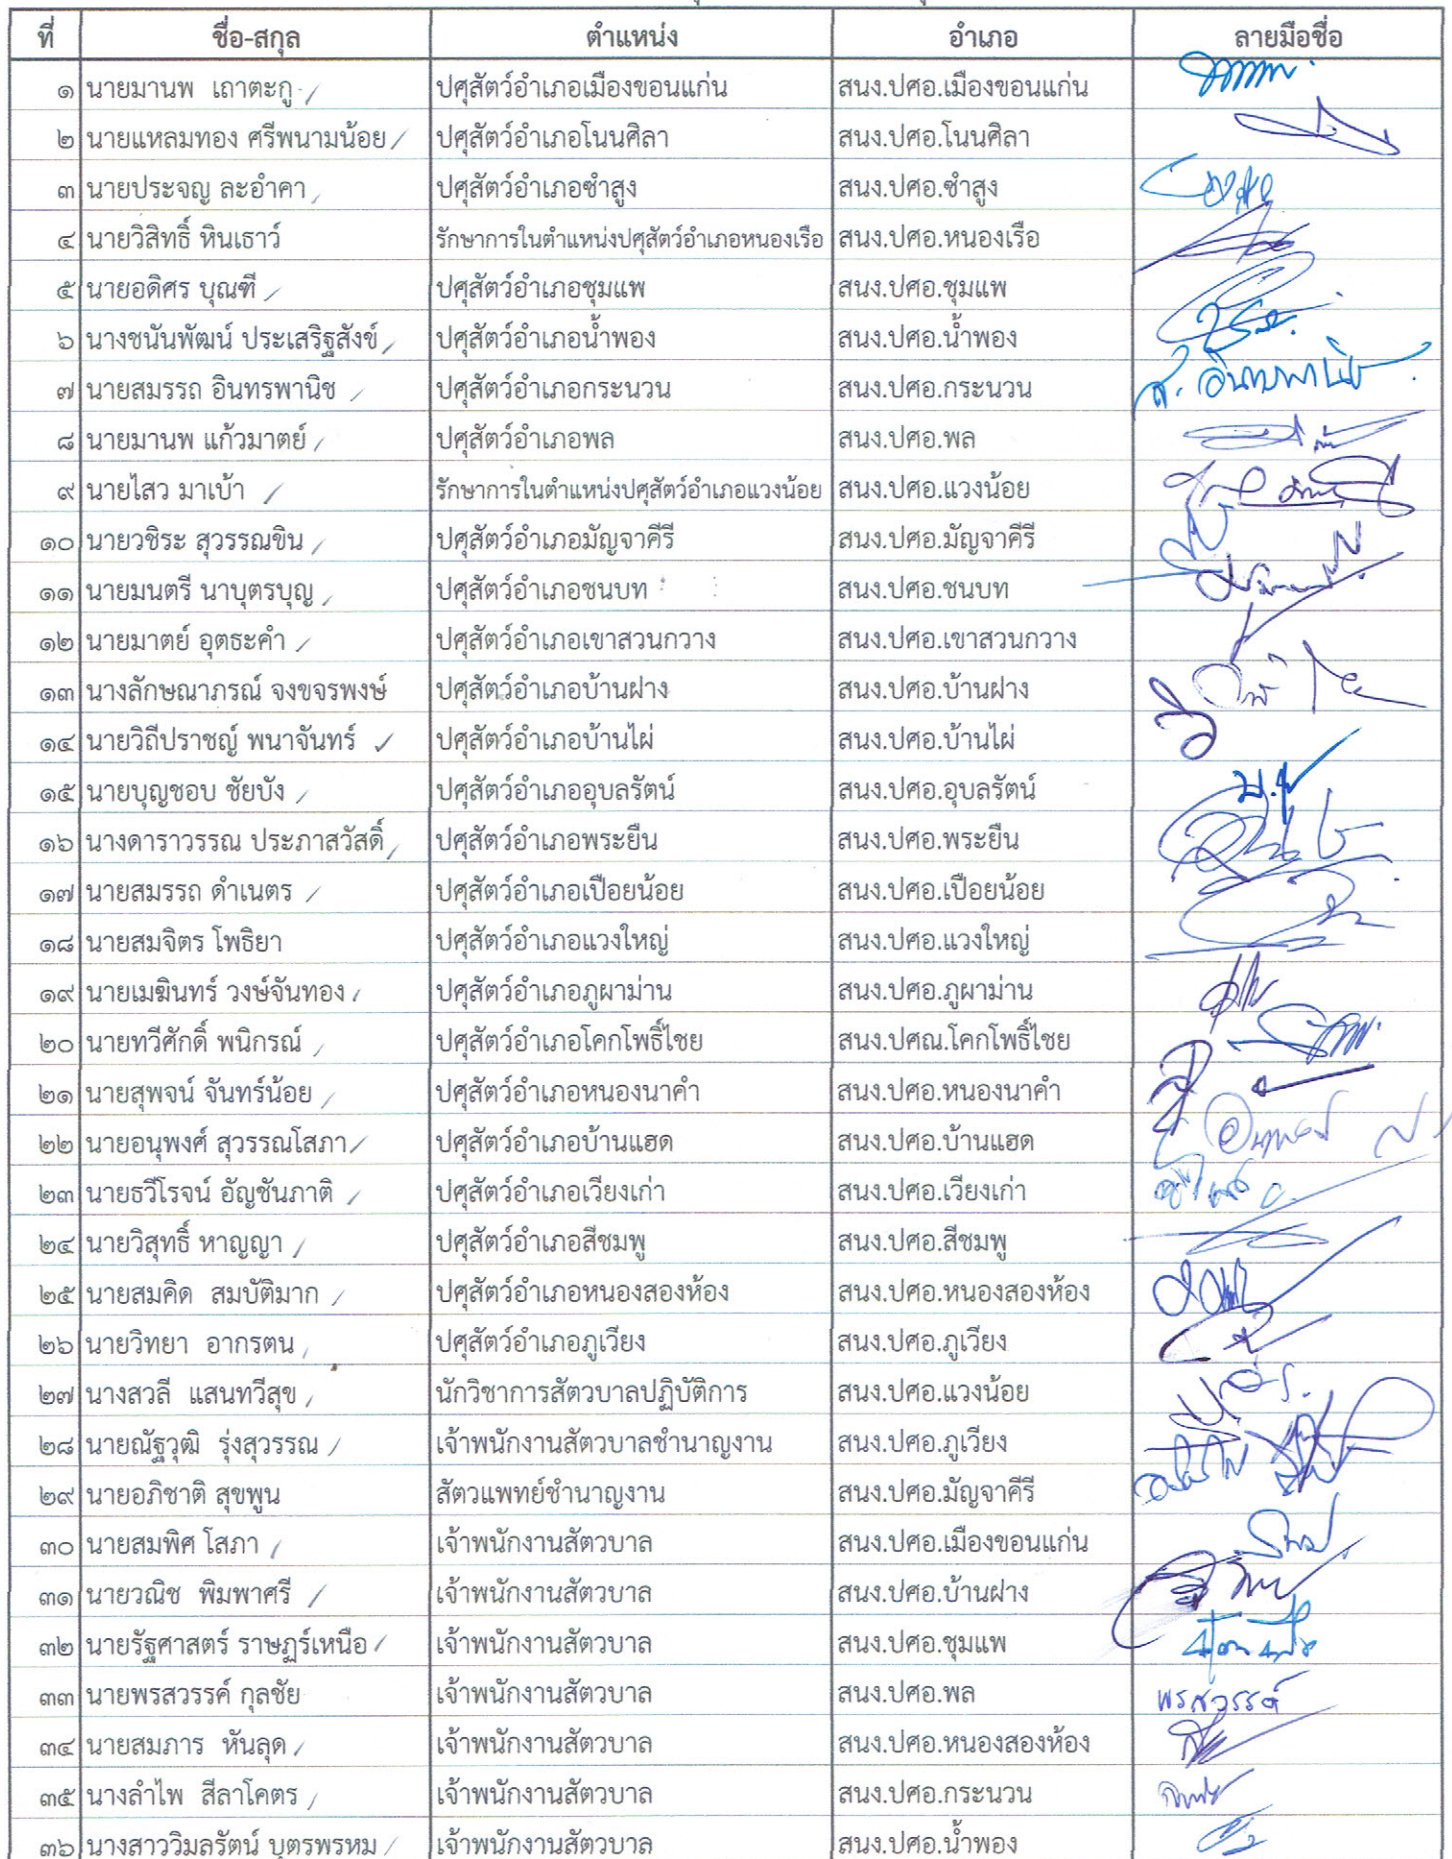 ที่ ชื่อ-สกุล ตำแหน่ง อำเภอ ลายมือชื่อ
๑ นายมานพ เถาตะกู ปศุสัตว์อำเภอเมืองขอนแก่น สนง.ปศอ.เมืองขอนแก่น
๒ นายแหลมทอง ศรีพนามน้อย ปศุสัตว์อำเภอโนนศิลา สนง.ปศอ.โนนศิลา
๓ นายประจญ ละอำคา ปศุสัตว์อำเภอซำสูง สนง.ปศอ.ซำสูง
๔ นายวิสิทธิ์ หินเธาว์ รักษาการในตำแหน่งปศุสัตว์อำเภอหนองเรือ สนง.ปศอ.หนองเรือ
๕ นายอดิศร บุณฑี ปศุสัตว์อำเภอชุมแพ สนง.ปศอ.ชุมแพ
๖ นางชนันพัฒน์ ประเสริฐสังข์ ปศุสัตว์อำเภอน้ำพอง สนง.ปศอ.น้ำพอง
๗ นายสมรรถ อินทรพานิช ปศุสัตว์อำเภอกระนวน สนง.ปศอ.กระนวน ส. อินทรพานิช
๘ นายมานพ แก้วมาตย์ ปศุสัตว์อำเภอพล สนง.ปศอ.พล
๙ นายไสว มาเบ้า รักษาการในตำแหน่งปศุสัตว์อำเภอแวงน้อย สนง.ปศอ.แวงน้อย
๑๐ นายวชิระ สุวรรณขิน ปศุสัตว์อำเภอมัญจาคีรี สนง.ปศอ.มัญจาคีรี
๑๑ นายมนตรี นาบุตรบุญ ปศุสัตว์อำเภอชนบท สนง.ปศอ.ชนบท
๑๒ นายมาตย์ อุตธะคำ ปศุสัตว์อำเภอเขาสวนกวาง สนง.ปศอ.เขาสวนกวาง
๑๓ นางลักษณาภรณ์ จงขจรพงษ์ ปศุสัตว์อำเภอบ้านฝาง สนง.ปศอ.บ้านฝาง
๑๔ นายวิถีปราชญ์ พนาจันทร์ ปศุสัตว์อำเภอบ้านไผ่ สนง.ปศอ.บ้านไผ่
๑๕ นายบุญชอบ ชัยบัง ปศุสัตว์อำเภออุบลรัตน์ สนง.ปศอ.อุบลรัตน์
๑๖ นางดาราวรรณ ประภาสวัสดิ์ ปศุสัตว์อำเภอพระยืน สนง.ปศอ.พระยืน
๑๗ นายสมรรถ ดำเนตร ปศุสัตว์อำเภอเปือยน้อย สนง.ปศอ.เปือยน้อย
๑๘ นายสมจิตร โพธิยา ปศุสัตว์อำเภอแวงใหญ่ สนง.ปศอ.แวงใหญ่
๑๙ นายเมฆินทร์ วงษ์จันทอง ปศุสัตว์อำเภอภูผาม่าน สนง.ปศอ.ภูผาม่าน
๒๐ นายทวีศักดิ์ พนิกรณ์ ปศุสัตว์อำเภอโคกโพธิ์ไชย สนง.ปศณ.โคกโพธิ์ไชย
๒๑ นายสุพจน์ จันทร์น้อย ปศุสัตว์อำเภอหนองนาคำ สนง.ปศอ.หนองนาคำ
๒๒ นายอนุพงศ์ สุวรรณโสภา ปศุสัตว์อำเภอบ้านแฮด สนง.ปศอ.บ้านแฮด
๒๓ นายธวีโรจน์ อัญชันภาติ ปศุสัตว์อำเภอเวียงเก่า สนง.ปศอ.เวียงเก่า
๒๔ นายวิสุทธิ์ หาญญา ปศุสัตว์อำเภอสีชมพู สนง.ปศอ.สีชมพู
๒๕ นายสมคิด สมบัติมาก ปศุสัตว์อำเภอหนองสองห้อง สนง.ปศอ.หนองสองห้อง
๒๖ นายวิทยา อากรตน ปศุสัตว์อำเภอภูเวียง สนง.ปศอ.ภูเวียง
๒๗ นางสวลี แสนทวีสุข นักวิชาการสัตวบาลปฏิบัติการ สนง.ปศอ.แวงน้อย
๒๘ นายณัฐวุฒิ รุ่งสุวรรณ เจ้าพนักงานสัตวบาลชำนาญงาน สนง.ปศอ.ภูเวียง
๒๙ นายอภิชาติ สุขพูน สัตวแพทย์ชำนาญงาน สนง.ปศอ.มัญจาคีรี
๓๐ นายสมพิศ โสภา เจ้าพนักงานสัตวบาล สนง.ปศอ.เมืองขอนแก่น
๓๑ นายวณิช พิมพาศรี เจ้าพนักงานสัตวบาล สนง.ปศอ.บ้านฝาง
๓๒ นายรัฐศาสตร์ ราษฎร์เหนือ เจ้าพนักงานสัตวบาล สนง.ปศอ.ชุมแพ
๓๓ นายพรสวรรค์ กุลชัย เจ้าพนักงานสัตวบาล สนง.ปศอ.พล พรสวรรค์
๓๔ นายสมภาร หันลุด เจ้าพนักงานสัตวบาล สนง.ปศอ.หนองสองห้อง
๓๕ นางลำไพ สีลาโคตร เจ้าพนักงานสัตวบาล สนง.ปศอ.กระนวน
๓๖ นางสาววิมลรัตน์ บุตรพรหม เจ้าพนักงานสัตวบาล สนง.ปศอ.น้ำพอง